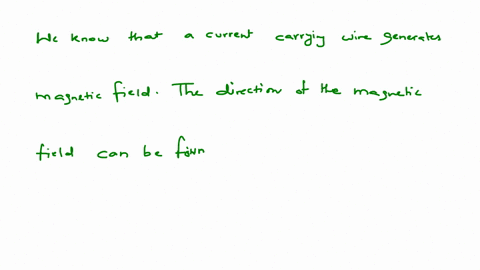 We know that a current carrying wire generates
magnetic field. The direction of the magnetic
field can be foun